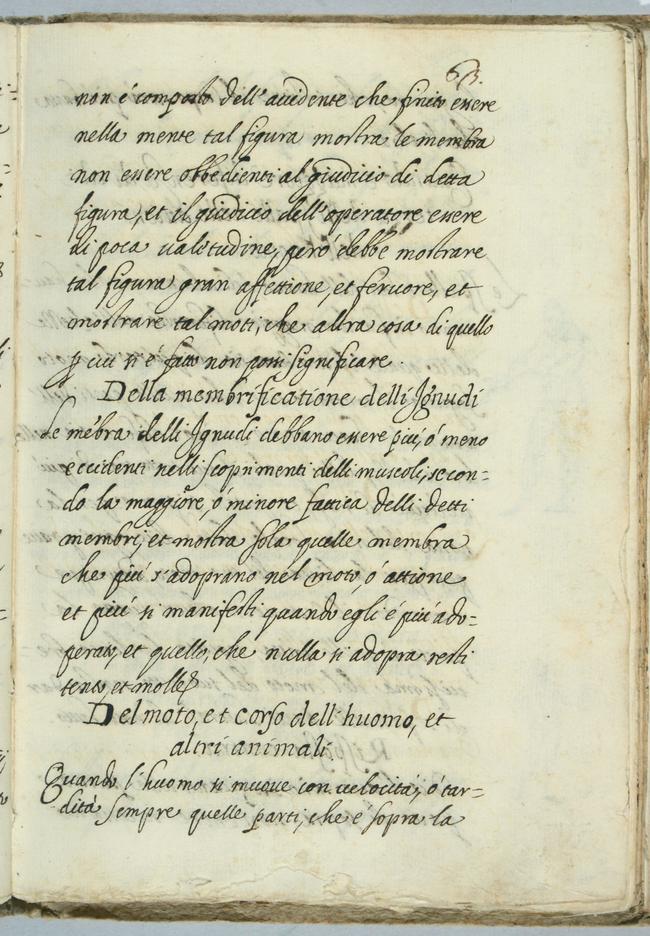 63.
non é composto dell'accidente che finito essere
nella mente tal figura mostra le membra
non essere obbedienti al giudicio di detta
figura, et il giudicio dell'operatore essere
di poca valetudine, peró debbe mostrare
tal figura gran affettione, et fervore, et
mostrare tal moti, che altra cosa di quello
ꝑ cui si é fatto non possi significare.
Della membrificatione delli Jgnudi
Le mēbra delli Jgnudi debbano essere piú, ó meno
eccidenti nelli scoprimenti delli muscoli, secon=
do la maggiore, ó minore fattica delli detti
membri, et mostra sola quelle membra
che piú s'adoprano nel moto, ó attione
et piú si manifesti quando egli é piú ado=
perato, et quello, che nulla si adopra resti
tento, et molle
Del moto, et corso dell'huomo, et
altri animali
Quando l'huomo si muove con velocitá, ó tar=
ditá sempre quelle parti, che é sopra la